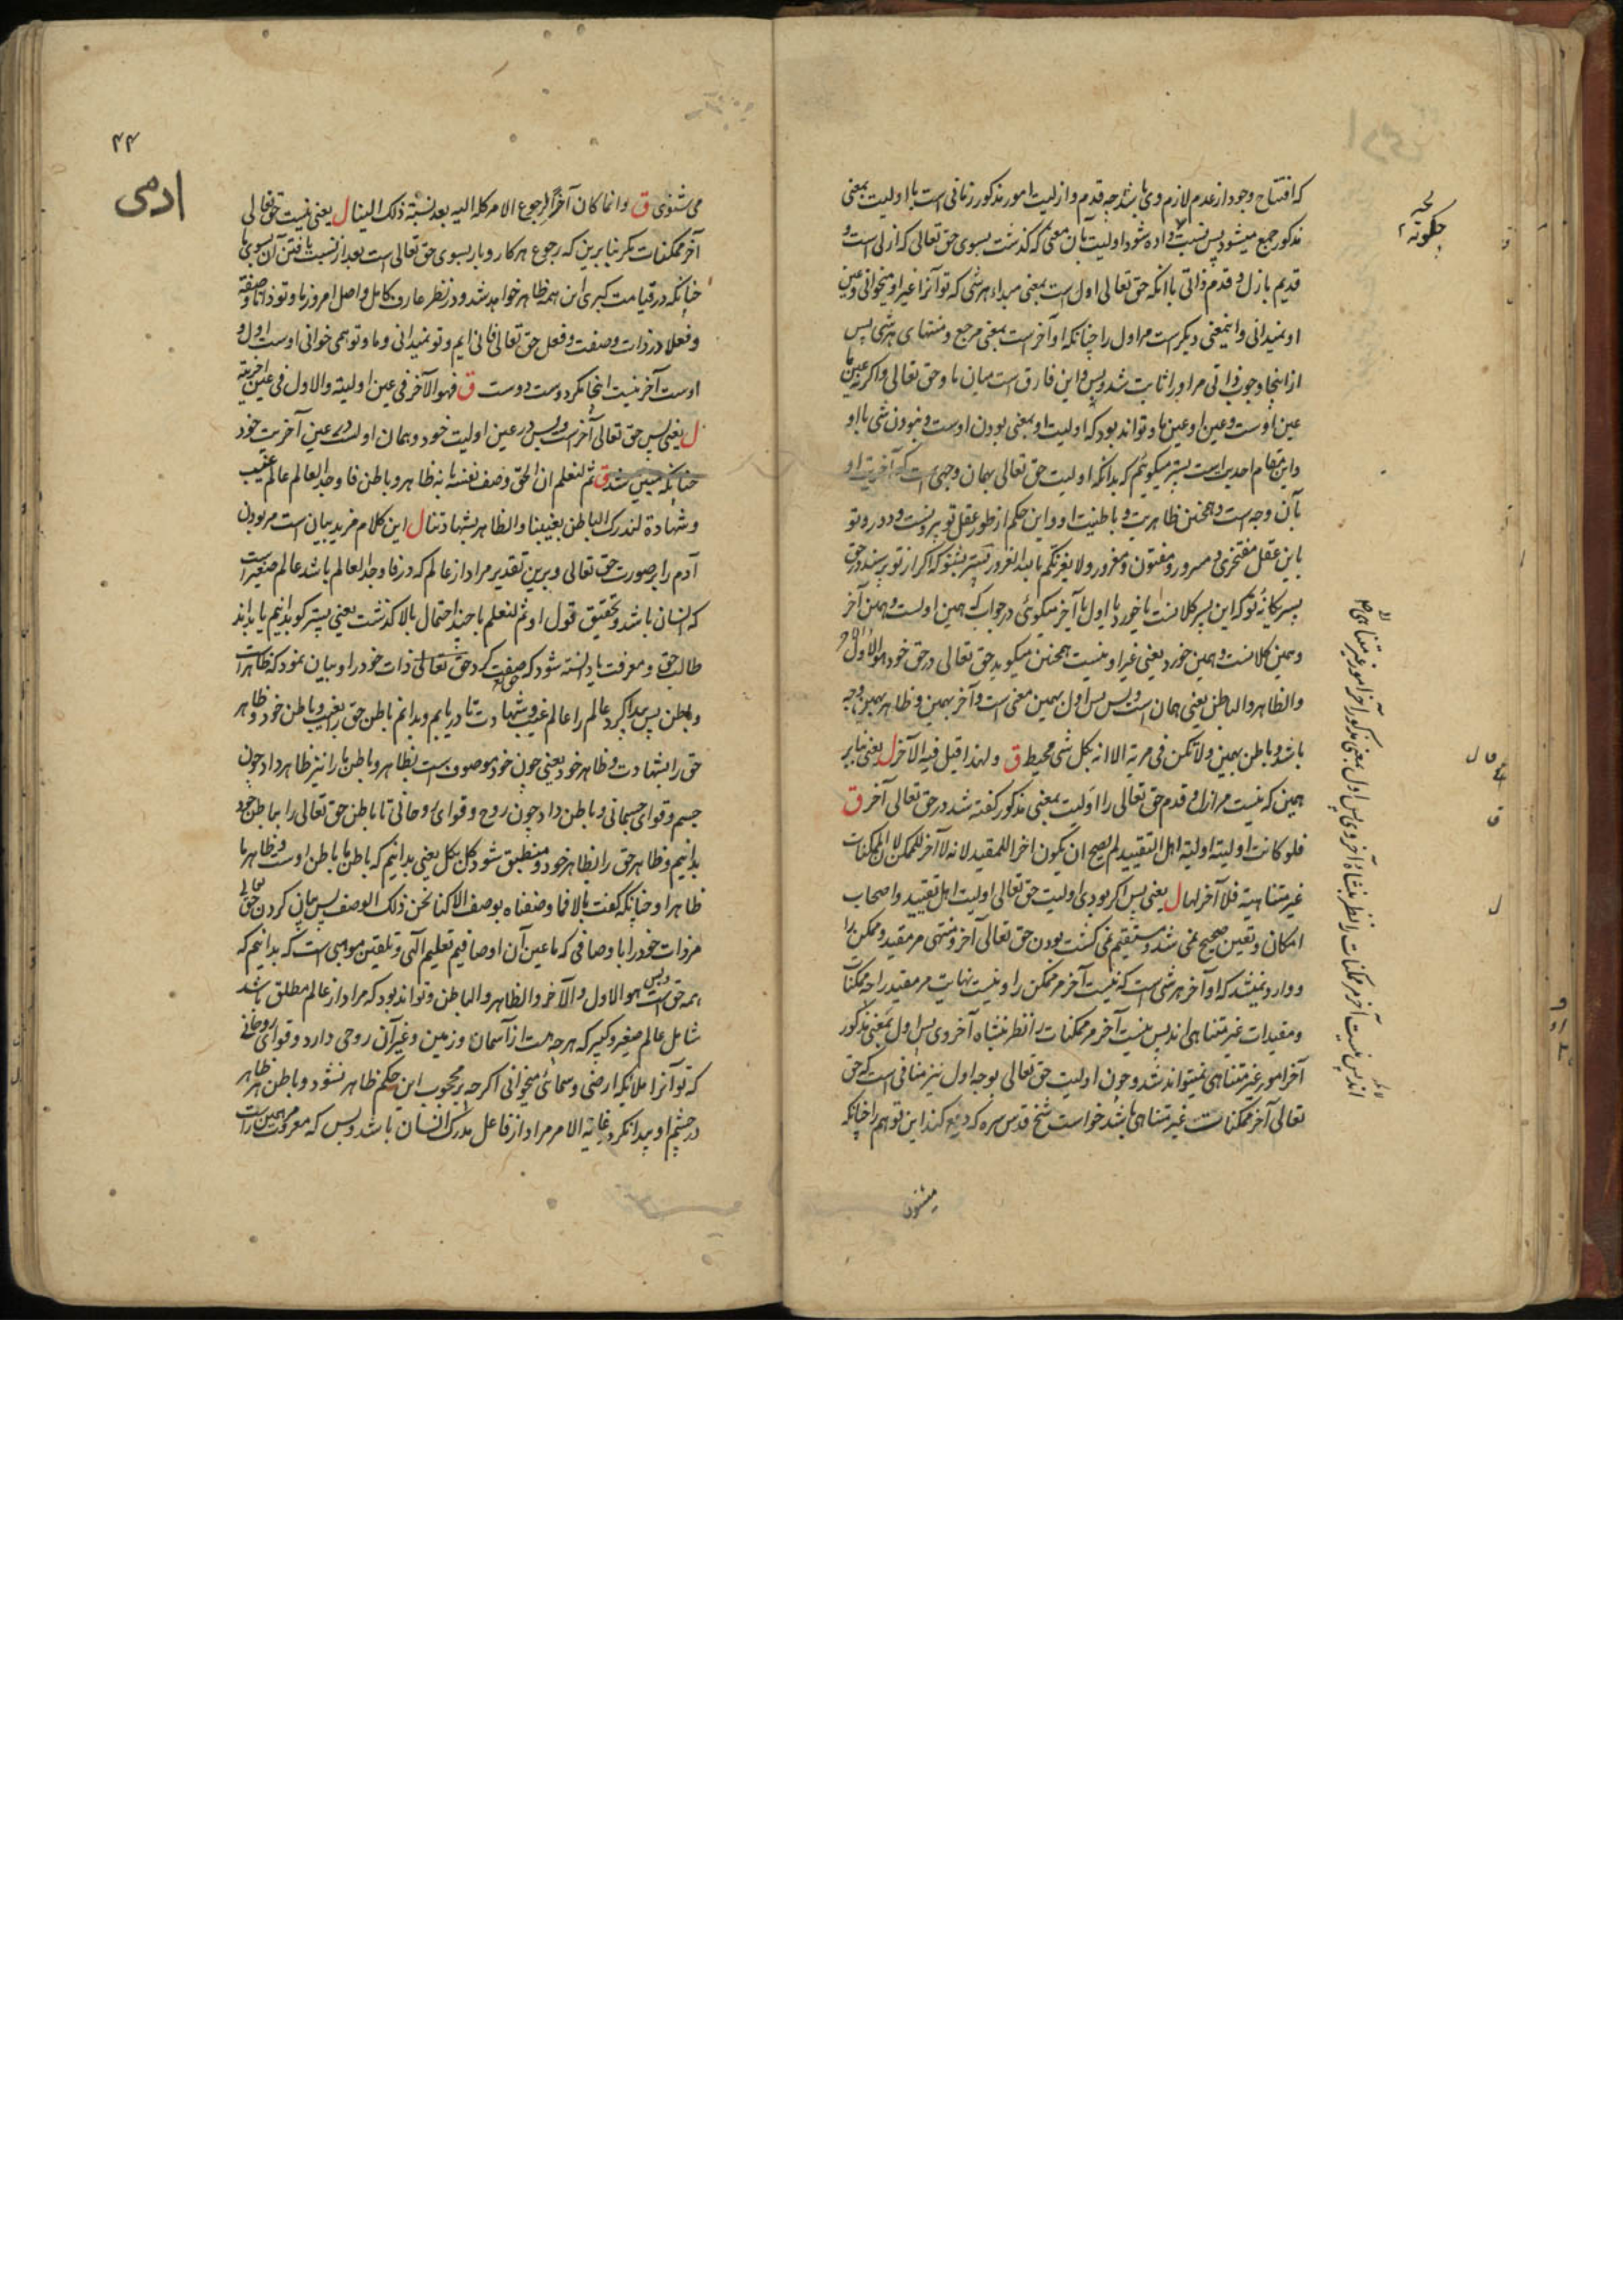 که افتتاح وجود از عدم لازم وی باشد چه قدم و ازلیت امور مذکور زمانی است با اولیت بمعنی
مذکور جمع میشود پس نسبت داده شود اولیت بآن معنی که گذشت بسوی حق تعالی که ازلی است و
قدیم بازل و قدم ذاتی با آنکه حق تعالی اول است بمعنی مبداء هر شی که تو آنرا غیر او میخوانی و عین
او نمیدانی و اینمعنی دیگرست مر اول را چنانکه او آخر است بمعنی مرجع و منتهای هر شی پس
از اینجا وجوب ذاتی مر او را ثابت شد و پس و این فارق است میان ما و حق تعالی و اگر نه عین ما
عین اوست و عین او عین ما و تواند بود که اولیت او بمعنی بودن اوست و نبودن شی با او
و این مقام احدیت است پستر میگویم که بدانکه اولیت حق تعالی بهمان وجهی است که آخریت او
بآن وجه است و همچنین ظاهریت و باطنیت او و این حکم از طور عقل تو بیرونست و دور و تو
باین عقل مفتخری و مسرور و مفتون و مغرور ولا یغرنکم بالله الغرور پستر بشنو که اگر از تو پرسند در حق
پسر یگانهٔ تو که این پسر کلانست یا خورد یا اول یا آخر میگوئی در جواب که همین اولست و همین آخر
و همین کلانست و همین خورد یعنی غیر او نیست همچنین میگوید حق تعالی در حق خود هو الاول والآخر
والظاهر والباطن یعنی همان است و پس پس اول بهمین معنی است و آخر بهمین و ظاهر بهمین وجه
باشد و باطن بهمین ولا تکن فی مریة الا انه بکل شی محیط ق ولهذا قیل فیه الآخر ل یعنی بنابر
همین که نیست مر ازل و قدم حق تعالی را اولیت بمعنی مذکور گفته شد در حق تعالی آخر ق
فلو کانت اولیته اولیة اهل التقیید لم یصح ان یکون اخرا للمقید لانه لا آخر للممکن لان الممکنات
غیر متناهیة فلا آخر لها ل یعنی پس اگر بودی اولیت حق تعالی اولیت اهل تقیید و اصحاب
امکان و تعین صحیح نمی شد و مستقیم نمی گشت بودن حق تعالی آخر و منتهی مر مقید و ممکن را
و وارد نمیشد که او آخر هر شی است که نیست آخر مر ممکن را و نیست نهایت مر مقید را چه ممکنات
و مقیدات غیر متناهی اند پس نیست آخر مر ممکنات را نظر بنشاه آخروی پس اول بمعنی مذکور
آخر امور غیر متناهی نمیتواند شد و چون اولیت حق تعالی بوجه اول نیز منافی است که حق
تعالی آخر ممکنات غیر متناهی باشد خواست شیخ قدس سره که دفع کند این توهم را چنانکه
میشنوی
چگونه
اند پس نیست آخر مر ممکنات را نظر بنشاة آخروی پس اول بمعنی مذکور آخر امور غیر متناهی
۴۴
ادمی
می شنوی ق وانما کان آخرا لرجوع الامر کله الیه بعد نسبة ذلک الینا ل یعنی نیست حق تعالی
آخر ممکنات مگر بنا برین که رجوع هر کار و بار بسوی حق تعالی است بعد از نسبت یافتن آن بسوی ما
چنانکه در قیامت کبری این همه ظاهر خواهد شد و در نظر عارف کامل و اصل امروز ما و تو ذاتا و صفة
و فعلا در ذات و صفت و فعل حق تعالی فانی ایم و تو نمیدانی و ما و تو همی خوانی اوست اول و
اوست آخر نیست اینجا مگر دوست دوست ق فهو الآخر فی عین اولیته والاول فی عین آخریته
ل یعنی پس حق تعالی آخر است و پس در عین اولیت خود و همان اول است در عین آخریت خود
چنانکه مبین شد ق ثم لنعلم ان الحق وصف نفسه بانه ظاهر و باطن فاوجد العالم عالم غیب
و شهادة لندرک الباطن بغیبنا والظاهر بشهادتنا ل این کلام مزید بیان است مر بودن
آدم را بر صورت حق تعالی و برین تقدیر مراد از عالم که در فاوجد العالم باشد عالم صغیر است
که انسان باشد و تحقیق قول او ثم لنعلم با چند احتمال بالا گذشت یعنی پستر گو بدانیم یا بداند
طالب حق و معرفت یا دانسته شود که صفت کرد حق تعالی ذات خود را و بیان نمود که ظاهر است
و باطن پس پیدا کرد عالم را عالم غیب و شهادت تا دریابیم و بدانیم باطن حق را بغیب و باطن خود و ظاهر
حق را بشهادت و ظاهر خود یعنی چون خود موصوف است بظاهر و باطن ما را نیز ظاهر داد چون
جسم و قوای جسمانی و باطن داد چون روح و قوای روحانی تا باطن حق تعالی را بباطن خود
بدانیم و ظاهر حق را بظاهر خود و منطبق شود کل بکل یعنی بدانیم که باطن ما باطن اوست و ظاهر ما
ظاهر او چنانکه گفت بالا فما وصفناه بوصف الا کنا نحن ذلک الوصف پس بیان کردن حق تعالی
مر ذات خود را باوصافی که ما عین آن اوصافیم تعلیم الهی و تلقین موهبی است که بدانیم که
همه حق است و پس هو الاول والآخر والظاهر والباطن و تواند بود که مراد از عالم مطلق باشد
شامل عالم صغیر و کبیر که هر چه هست از آسمان و زمین و غیر آن روحی دارد و قوای روحانی
که تو آنرا ملائکه ارضی و سمائی میخوانی اگر چه بر محجوب این حکم ظاهر نشود و باطن هر ظاهر
در چشم او پیدا نگردد غایة الامر مراد از فاعل ندرک انسان باشد و پس که معرفت همین راست